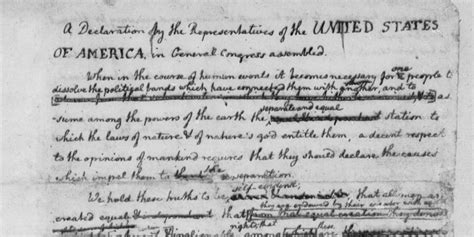 A Declaration by the Representatives of the UNITED STATES
OF AMERICA, in General Congress assembled.
When in the course of human events it becomes necessary for one people to
dissolve the political bands which have connected them with another, and to
assume among the powers of the earth the separate and equal station to
which the laws of nature & of nature's god entitle them, a decent respect
to the opinions of mankind requires that they should declare the causes
which impel them to the separation.
We hold these truths to be self-evident, that all men are
created equal that they are endowed by their creator with
rights that these
inalienable among